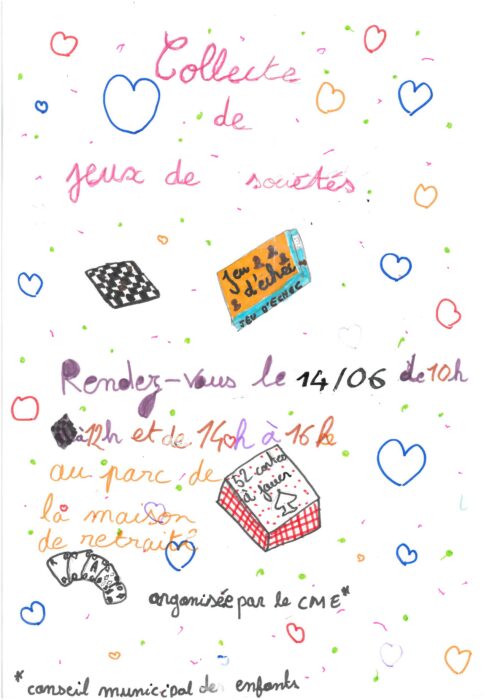 Collecte
de
jeux de sociétés
Jeu
d'échec
JEU D'ECHEC
Rendez-vous le 14/06 de 10h
à 12h et de 14h à 16h
au parc de
la maison
de retraité
52 cartes
à jouer
organisée par le CME*
*conseil municipal des enfants